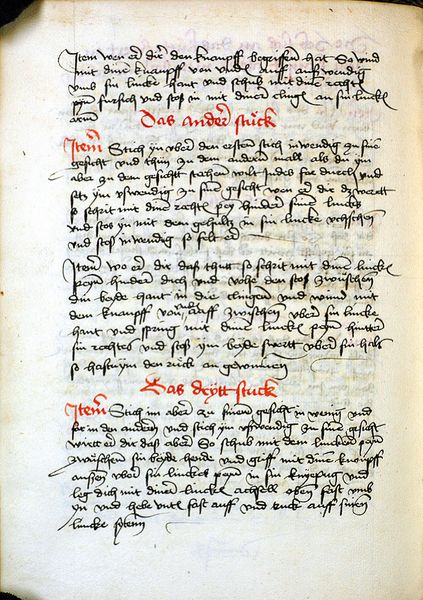 Item wen er dir den knaupff begriffen hat So wind
mit dinem knaupff von unden auff ußwendig
umb sin lincke hant und schub mit dinem rechten
payn fürsich und stos in mit diner clingen an sin lincken
arm
Das ander stuck
Item Stich ym uber den ersten stich inwendig zu sine
gesicht und thuy zu dem andern mall als du ym
aber zu dem gesicht stechen wilt Indes far durch und
setz ym ußwendig zu sine gesicht wen er dir das wert
so schrit mit dinem rechten pay hinder sinen lincks
und stos yn mit dem gehultz in sin lincke uchschen
und stos inwendig so felt er
Item wo er dir das thutt so schrit mit dinem lincken
payn hinder dich und vohe den stos zwüschen
din beyde hant in die clingen und wind mit
dem knaupff von unden auff zwischen uber sin lincke
hant und spring mit dinem lincken payn hinter
sin rechtes und stos ym beyde swertt uber sin hals
so hastu ym den rück an gewunnen
Das drytt stuck
Item Stich im aber zu sinem gesicht in wenig und
far in den andern und stich yn ußwendig zu sine gesicht
wert er dir das aber So schub mit dem lincken payn
zwüschen sin beyde hende und griff mit dinem knopff
aussen uber sin linckes payn in sin knyepug und
leg dich mit diner lincken achsell oben fast umb
yn und hebe unden fast auff und ruck auff sinen
lincke sytenn